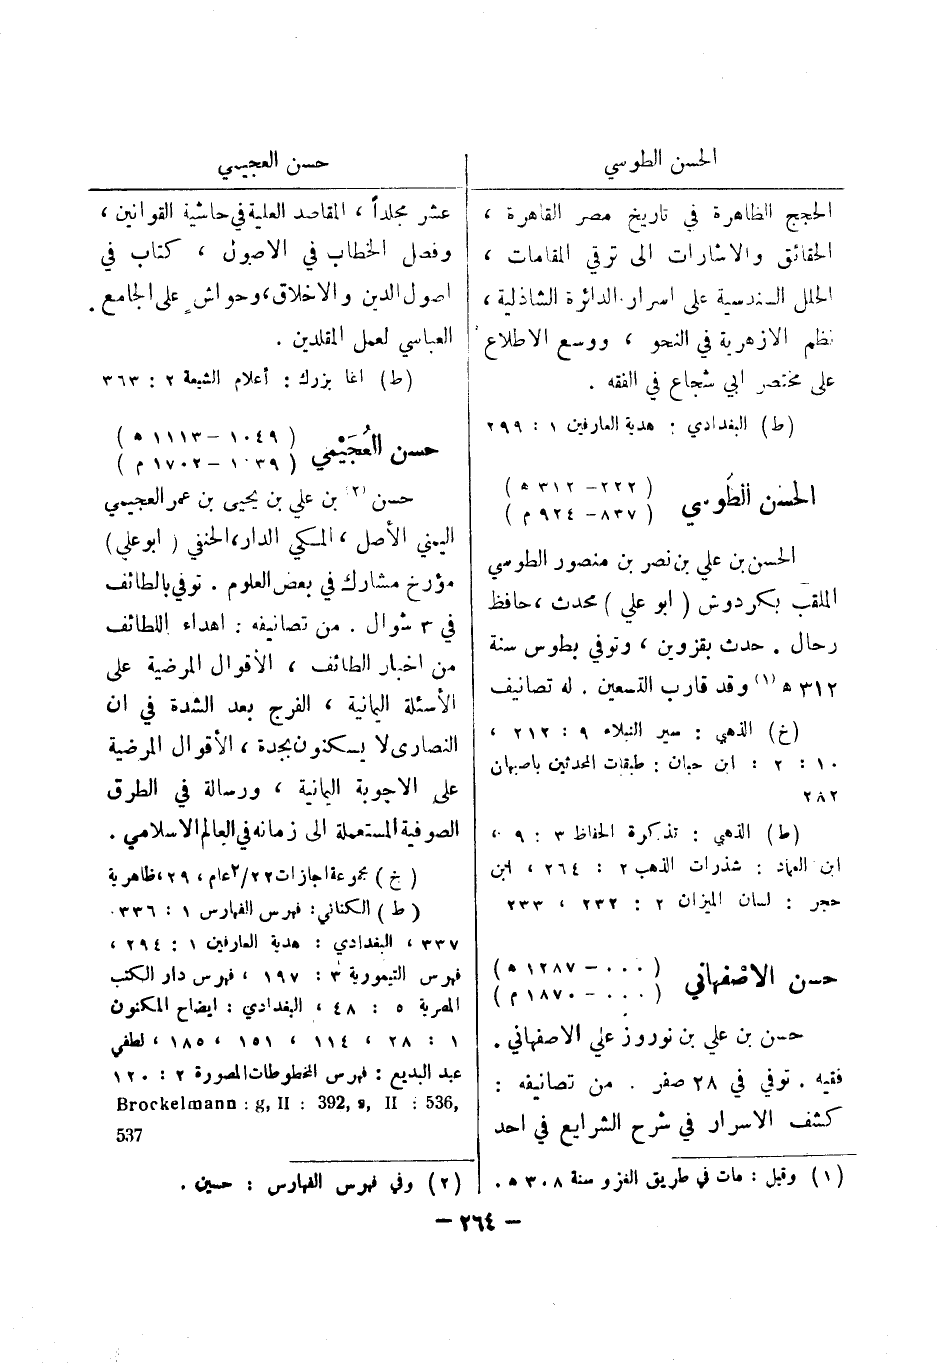 الحسن الطوسي
الحجج الظاهرة في تاريخ مصر القاهرة ،
الحقائق والاشارات الى ترقي المقامات ،
الحلل السندسية على اسرار الدائرة الشاذلية ،
نظم الازهرية في النحو ، ووسع الاطلاع
على مختصر ابي شجاع في الفقه .
(ط) البغدادي : هدية العارفين ١ : ٢٩٩
الحسَن الطُوسي
( ٢٢٢ – ٣١٢ ه )
( ٨٣٧ – ٩٢٤ م )
الحسن بن علي بن نصر بن منصور الطوسي
الملقب بكردوش ( ابو علي ) محدث ، حافظ
رحال . حدث بقزوين ، وتوفي بطوس سنة
٣١٢ ه (١) وقد قارب التسعين . له تصانيف
(خ) الذهبي : سير النبلاء ٩ : ٢١٢ ،
١٠ : ٢ : ابن حبان : طبقات المحدثين باصبهان
٢٨٢
(ط) الذهبي : تذكرة الحفاظ ٣ : ٩ ،
ابن العماد : شذرات الذهب ٢ : ٢٦٤ ، ابن
حجر : لسان الميزان ٢ : ٢٣٢ ، ٢٣٣
حسن الاصْفهاني
( ... – ١٢٨٧ ه )
( ... – ١٨٧٠ م )
حسن بن علي بن نوروز علي الاصفهاني .
فقيه . توفي في ٢٨ صفر . من تصانيفه :
كشف الاسرار في شرح الشرايع في احد
(١) وقيل : مات في طريق الغزو سنة ٣٠٨ ه .
حسن العجيمي
عشر مجلداً ، المقاصد العلية في حاشية القوانين ،
وفصل الخطاب في الاصول ، كتاب في
اصول الدين والاخلاق ، وحواشٍ على الجامع
العباسي لعمل المقلدين .
(ط) اغا بزرك : أعلام الشيعة ٢ : ٣٦٣
حسن العُجَيْمي
( ١٠٤٩ – ١١١٣ ه )
( ١٠٣٩ – ١٧٠٢ م )
حسن (٢) بن علي بن يحيى بن عمر العجيمي
اليمني الأصل ، المكي الدار ، الحنفي ( ابو علي )
مؤرخ مشارك في بعض العلوم . توفي بالطائف
في ٣ شوال . من تصانيفه : اهداء اللطائف
من اخبار الطائف ، الأقوال المرضية على
الأسئلة اليمانية ، الفرج بعد الشدة في ان
النصارى لا يسكنون بجدة ، الأقوال المرضية
على الاجوبة اليمانية ، ورسالة في الطرق
الصوفية المستعملة الى زمانه في العالم الاسلامي .
( خ ) مجموعة اجازات ٢/٢٢ عام ، ٢٩ ، ظاهرية
( ط ) الكتاني : فهرس الفهارس ١ : ٣٣٦ .
٣٣٧ ، البغدادي : هدية العارفين ١ : ٢٩٤ ،
فهرس التيمورية ٣ : ١٩٧ ، فهرس دار الكتب
المصرية ٥ : ٤٨ ، البغدادي : ايضاح المكنون
١ : ٢٨ ، ١١٤ ، ١٥١ ، ١٨٥ ، لطفي
عبد البديع : فهرس المخطوطات المصورة ٢ : ١٢٠
Brockelmann : g, II : 392, s, II : 536,
537
(٢) وفي فهرس الفهارس : حسين .
– ٢٦٤ –